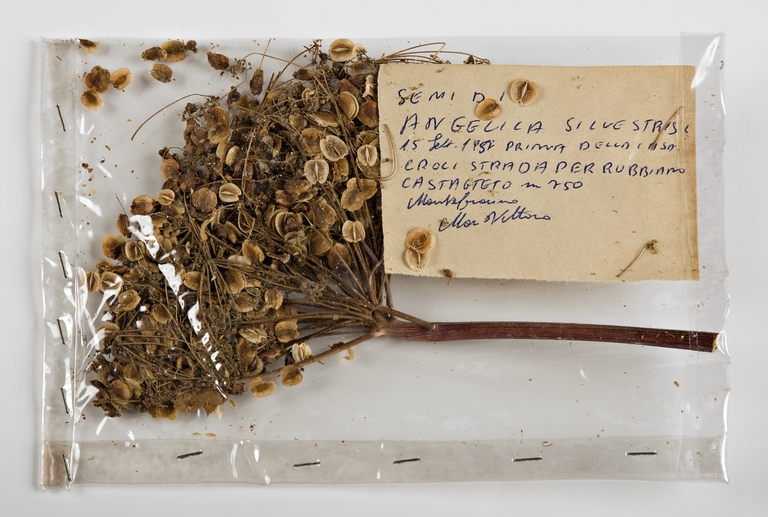 SEMI DI
ANGELICA SILVESTRIS
15 Sett. PRIMA DELLA CASA
CROCI STRADA PER RUBBIANO
CASTAGTETO m 750
Montefranno